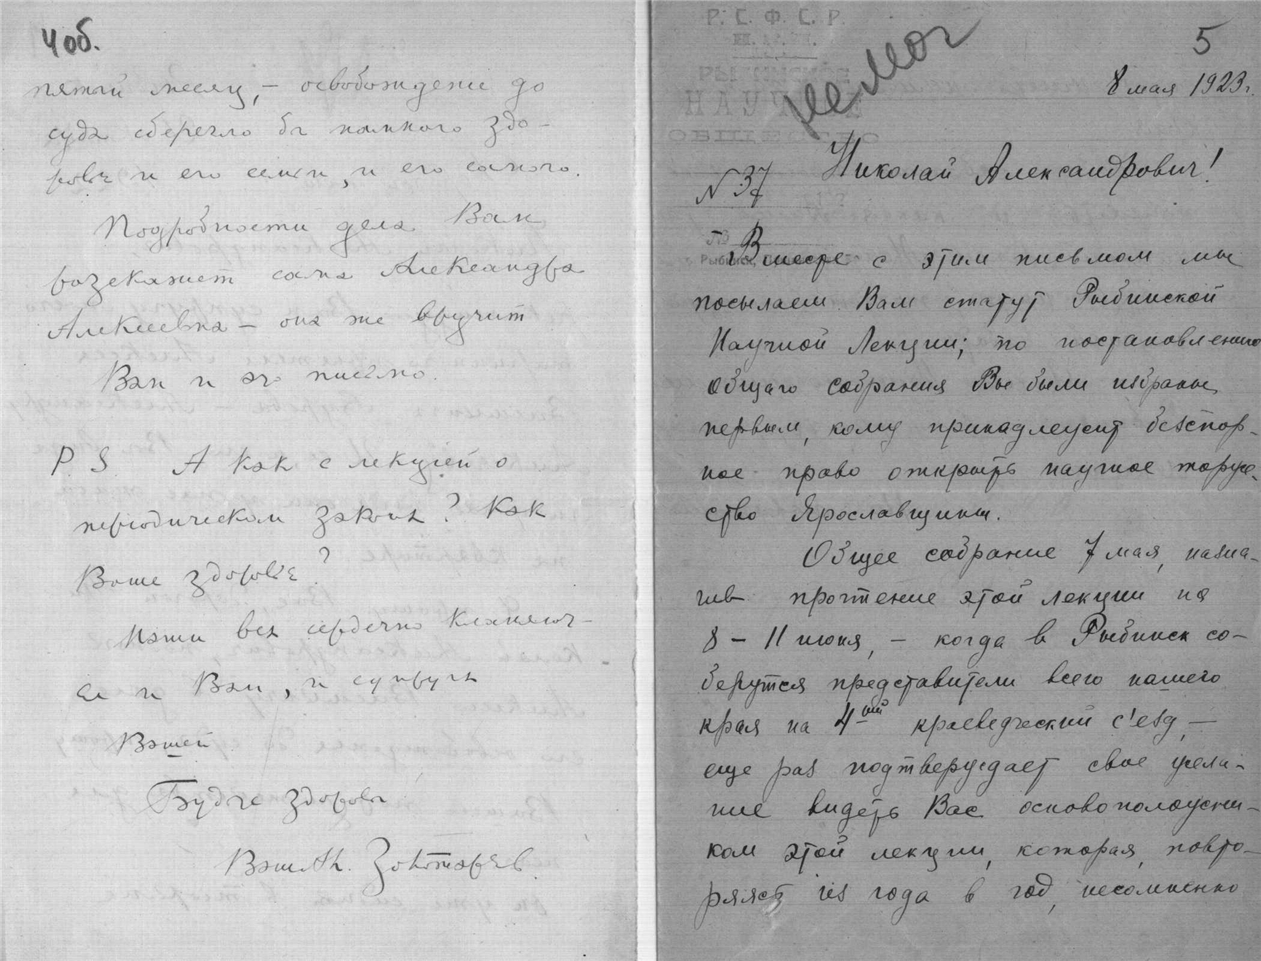 4 об.
пятый месяц, — освобождение до
суда сберегло бы немного здо-
ровье и его семьи, и его самого.
Подробности дела Вам
разскажет сама Александра
Алексеевна — она же вручит
Вам и это письмо.
P S. А как с лекцией о
периодическом законе? Как
Ваше здоровье?
Наши все сердечно кланяют-
ся и Вам, и супруге
Вашей
Будьте здоровы
Ваш Ал. Золотарев.
не мог
5
Р. С. Ф. С. Р.
РЫБИНСКОЕ
НАУЧНОЕ
ОБЩЕСТВО
8 мая 1923 г.
№ 37
Николай Александрович!
Вместе с этим письмом мы
посылаем Вам статут Рыбинской
Научной Лекции; по постановлению
общаго собрания Вы были избраны
первым, кому принадлежит безспор-
ное право открыть научное торже-
ство Ярославщины.
Общее собрание 7 мая, назна-
чив прочтение этой лекции на
8 — 11 июня, — когда в Рыбинск со-
берутся представители всего нашего
края на 4-ый краеведческий с'езд, —
еще раз подтверждает свое жела-
ние видеть Вас основоположни-
ком этой лекции, которая, повто-
ряясь из года в год, несомненно